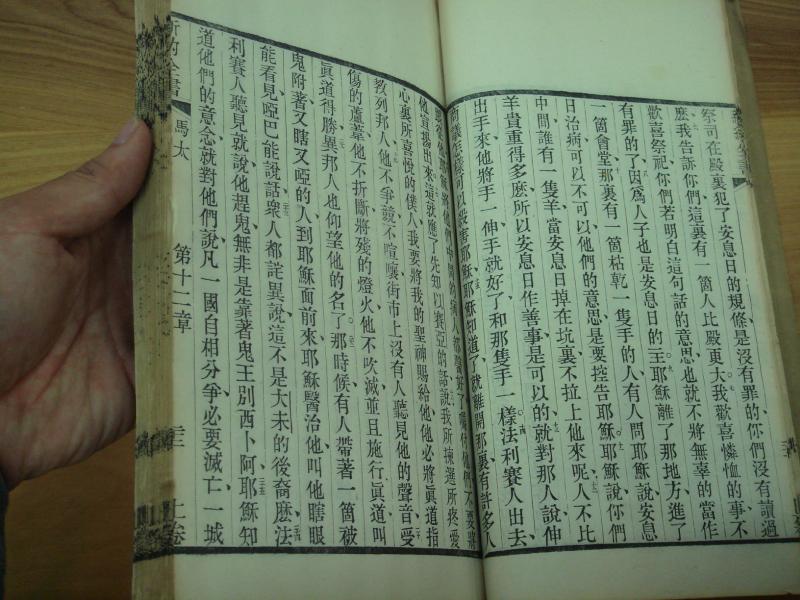 祭司在殿裏犯了安息日的規條是沒有罪的、你們沒有讀過
麽、我告訴你們、這裏有一箇人比殿更大、我歡喜憐恤的事、不
歡喜祭祀、你們若明白這句話的意思、也就不將無辜的當作
有罪的了、因爲人子也是安息日的主、耶穌離了那地方、進了
一箇會堂、那裏有一箇枯乾一隻手的人、有人問耶穌說、安息
日治病可以不可以、他們的意思是要控告耶穌、耶穌說、你們
中間誰有一隻羊、當安息日掉在坑裏、不拉上他來呢、人不比
羊貴重得多麽、所以安息日作善事是可以的、就對那人說、伸
出手來、他將手一伸、手就好了、和那隻手一樣、法利賽人出去、
商議怎樣可以殺害耶穌、耶穌知道了、就離開那裏、有許多人
他宣揚出來、這就應了先知以賽亞的話說、我所揀選所疼愛
心裏所喜悅的僕人、我要將我的聖神賜給他、他必將眞道指
教列邦人、他不爭競、不喧嚷、街市上沒有人聽見他的聲音、受
傷的蘆葦、他不折斷、將殘的燈火、他不吹滅、並且施行眞道、叫
眞道得勝、異邦人也仰望他的名了、那時候有人帶著一箇被
鬼附著、又瞎又啞的人、到耶穌面前來、耶穌醫治他、叫他瞎眼
能看見、啞巴能說話、衆人都詫異說、這不是大未的後裔麽、法
利賽人聽見、就說、他趕鬼、無非是靠著鬼王別西卜阿、耶穌知
道他們的意念、就對他們說、凡一國自相分爭、必要滅亡、一城
新約全書 馬太 第十二章 上卷